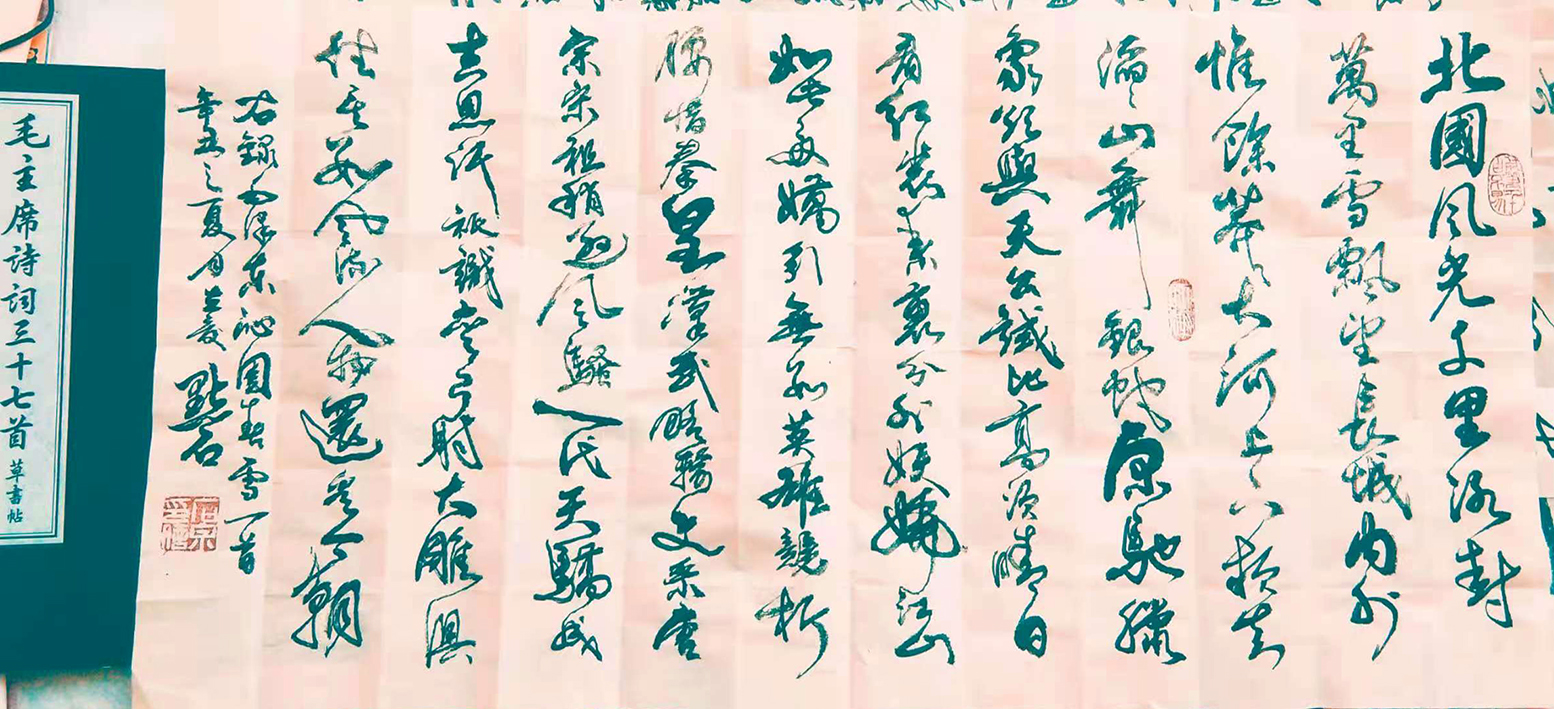 北國風光千里冰封
萬里雪飄望長城内外
惟餘莽〻大河上下頓失
滔〻山舞銀蛇原馳臘
象欲與天公試比高須晴日
看紅裝素裹分外妖嬈江山
如此多嬌引無數英雄競折
腰惜秦皇漢武略輸文采唐
宗宋祖稍遜風騷一代天驕成
吉思汗祇識彎弓射大雕俱
往矣數風流人物還看今朝
右錄毛澤東沁園春雪一首
辛丑之夏月 點石
毛主席詩詞三十七首 草書帖